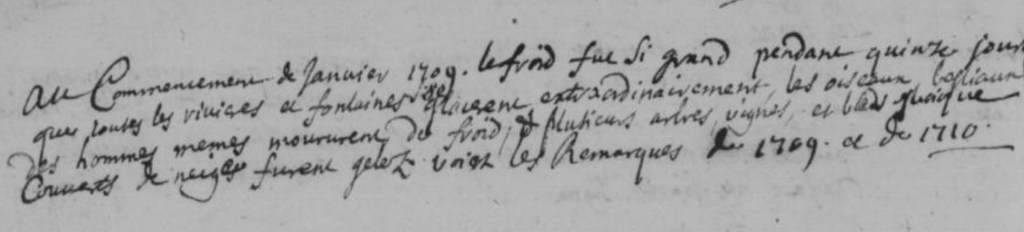 au Commencement de Janvier 1709. le froid fut si grand pendant quinze jours
que toutes les rivieres et fontaines se glacerent extraordinairement, les oiseaux, bestiaux
des hommes memes moururent de froid, et plusieurs arbres, vignes, et bleds quoique
Couverts de neiges furent gelez. voiez les Remarques de 1709. et de 1710.